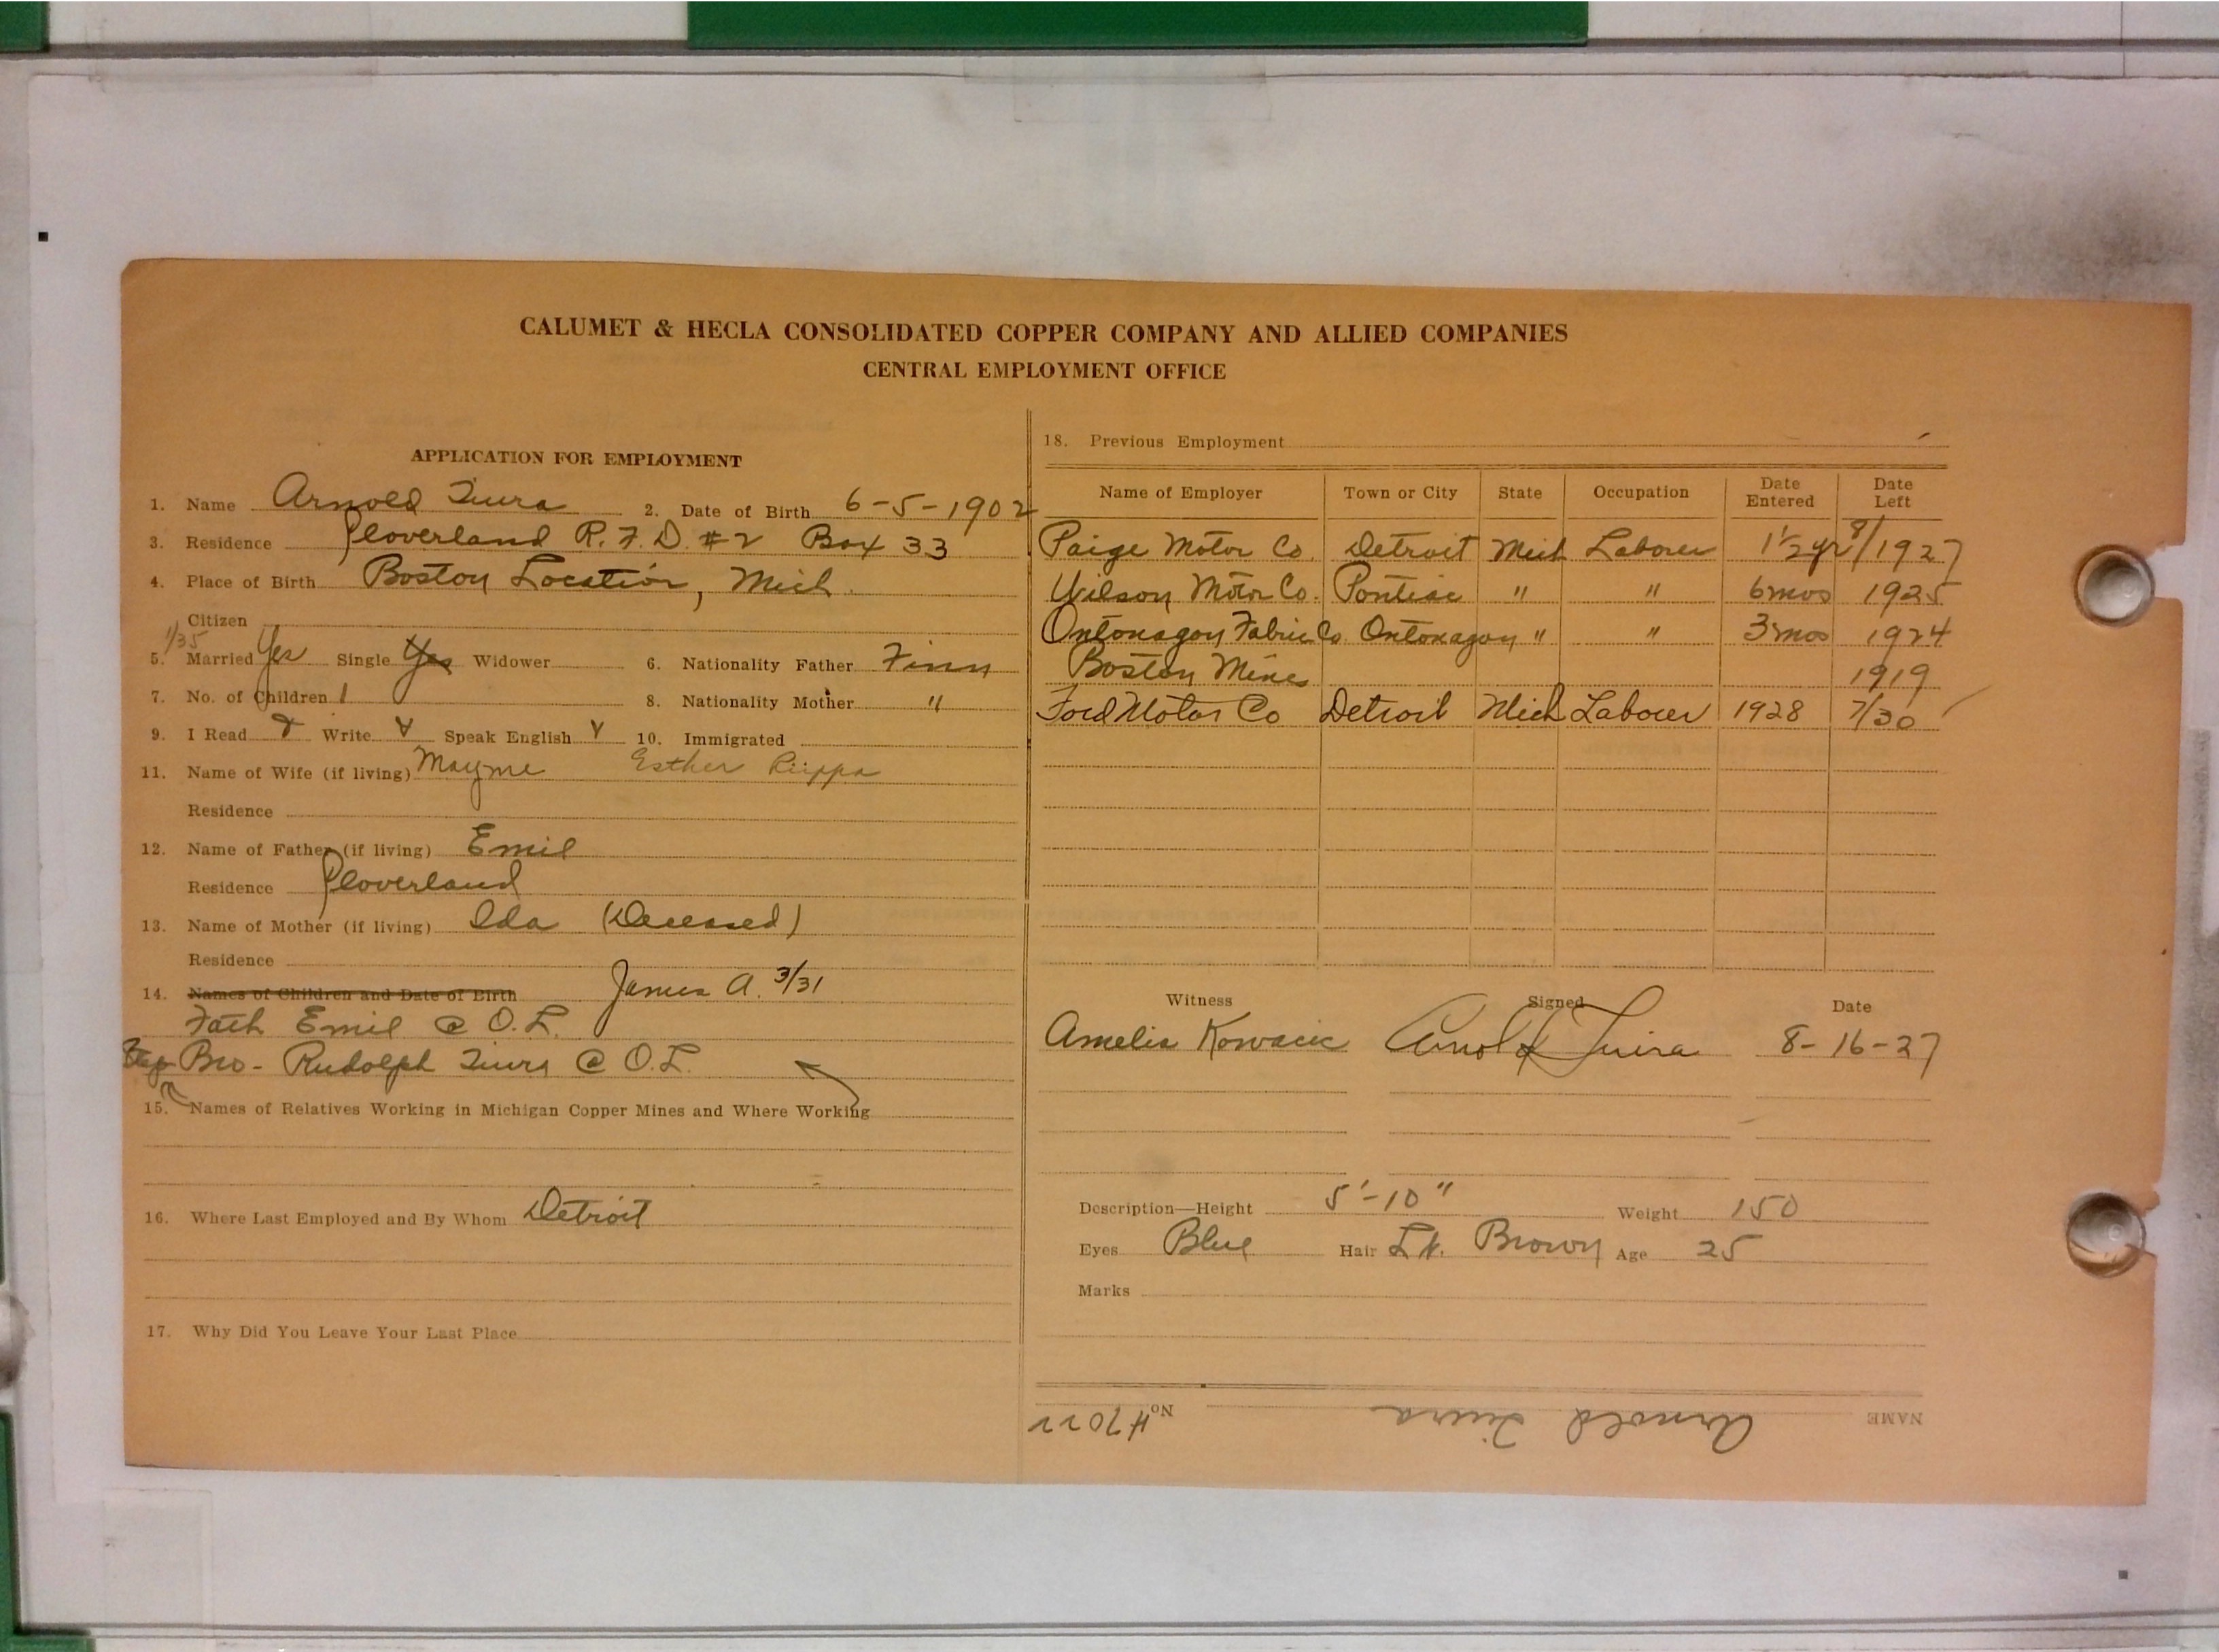 CALUMET & HECLA CONSOLIDATED COPPER COMPANY AND ALLIED COMPANIES
CENTRAL EMPLOYMENT OFFICE
APPLICATION FOR EMPLOYMENT
1. Name Arnold 2. Date of Birth 6-5-1902
3. Residence Cloverland R.F.D. #2 Box 33
4. Place of Birth Boston Location, Mich.
Citizen
1/35
5. Married Yes Single Yes Widower 6. Nationality Father Finn
7. No. of Children 1 8. Nationality Mother "
9. I Read Y Write Y Speak English Y 10. Immigrated
11. Name of Wife (if living) Mayme Esther
Residence
12. Name of Father (if living) Emil
Residence Cloverland
13. Name of Mother (if living) Ida (Deceased)
Residence
14. Names of Children and Date of Birth James A. 3/31
Fath Emil @ O.L.
Step Bro - Rudolph @ O.L.
15. Names of Relatives Working in Michigan Copper Mines and Where Working
16. Where Last Employed and By Whom Detroit
17. Why Did You Leave Your Last Place
18. Previous Employment
Name of Employer Town or City State Occupation Date Entered Date Left
Paige Motor Co. Detroit Mich Laborer 1½ yr 8/1927
Wilson Motor Co. Pontiac " " 6 mos 1925
Ontonagon Fabric Co. Ontonagon " " 3 mos 1924
Boston Mines 1919
Ford Motor Co Detroit Mich Laborer 1928 7/30
Witness Signed Date
Amelia Kovacic Arnold 8-16-27
Description—Height 5'-10" Weight 150
Eyes Blue Hair Lt. Brown Age 25
Marks
NAME Arnold No. H7022